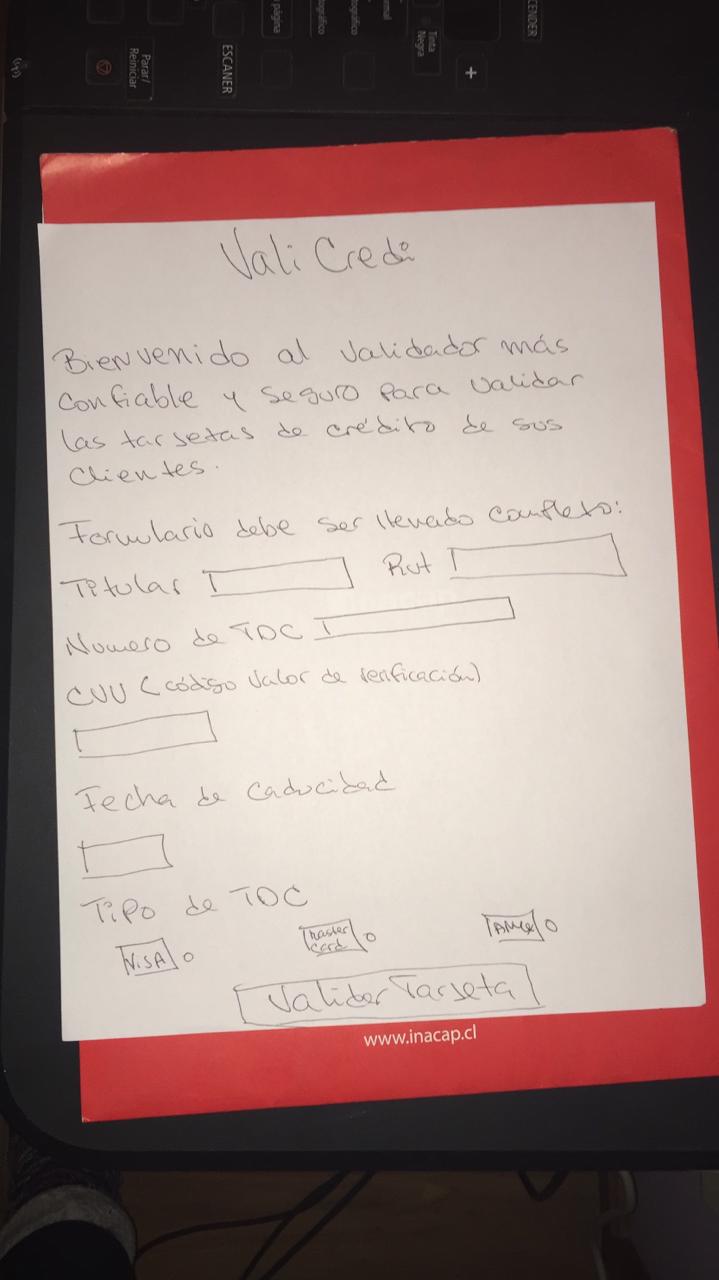 CENDER
Tinta
Negra
+
página
ESCANER
Parar/
Reiniciar
Vali Credi
Bienvenido al validador más
confiable y seguro para validar
las tarjetas de crédito de sus
clientes.
Formulario debe ser llenado completo:
Titular Rut
Numero de TDC
CVV (código valor de verificación)
Fecha de caducidad
Tipo de TDC
VISA Master Card Amex
Validar Tarjeta
www.inacap.cl